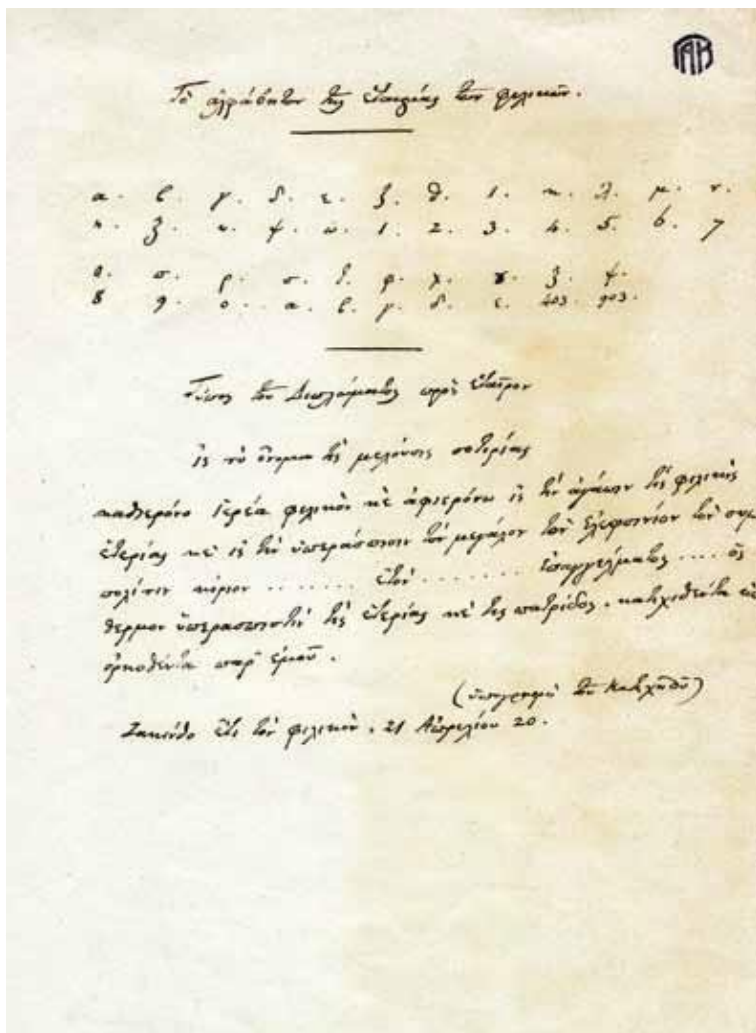 ΓΑΚ
Τὸ ἀλφάβητον τῆς ἑταιρίας τῶν φιλικῶν.
α. β. γ. δ. ε. ζ. θ. ι. κ. λ. μ. ν.
η. ξ. υ. ψ. ω. 1. 2. 3. 4. 5. 6. 7
ο. π. ρ. σ. τ. φ. χ. υ. ξ. ψ.
8 9. ο. α. β. γ. δ. ε. 4σ3. 9σ3.
Τύπος τοῦ Διπλώματος πρὸς ἑταῖρον
ἰς τὸ ὄνομα τῆς μελούσις σοτιρίας
καθιερόνο ἱερέα φιλικὸν κὲ ἀφιερόνω ἰς τὴν ἀγάπιν τῆς φιλικῆς
ἑτερίας κὲ ἰς τὴν ὑπεράσπισιν τὸν μεγάλον τὸν ἐλεφσινίον τὸν συμ
πολίτιν κύριον ....... ἐτὸν ........ ἐπαγγέλματος .... ὂς
θερμὸν ὑπερασπιστὴν τῆς ἑτερίας κὲ τῆς πατρίδος. κατιχιθέντα κὲ
ὁρκοθέντα παρ' ἐμοῦ.
(ὑπογραφὴ τοῦ Κατηχητοῦ)
Ζακύνθο ἔτι τὸν φιλικὸν. 21 Ἀπριλίου 20.